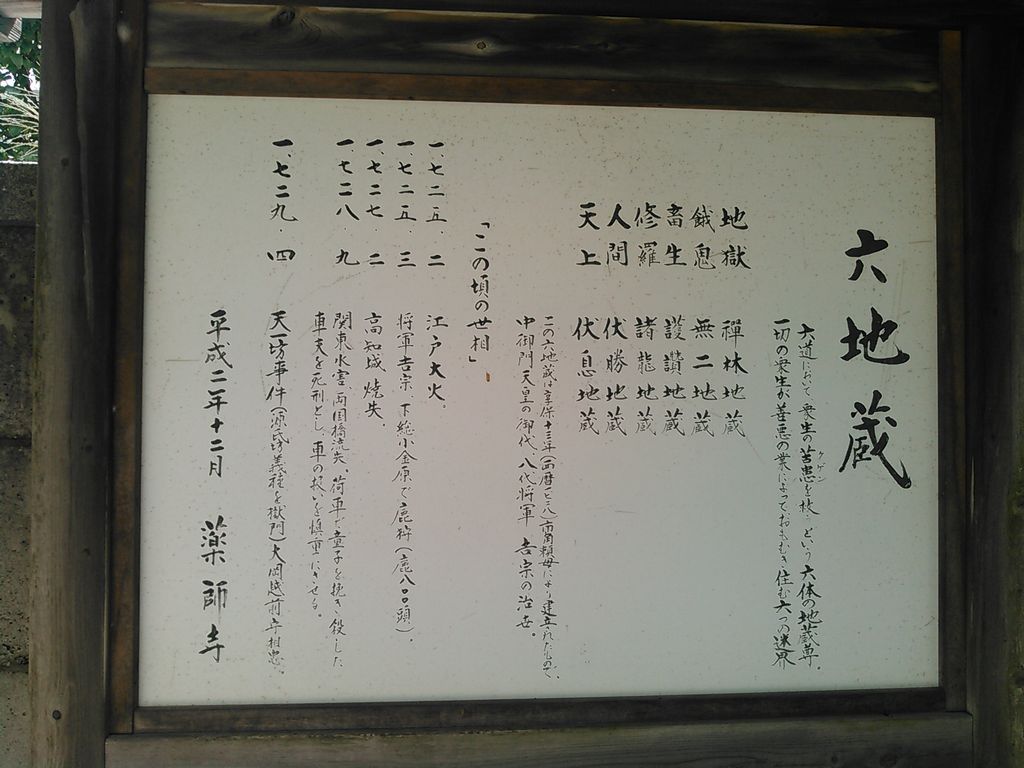 六地蔵
六道において衆生の苦患を救うという六体の地蔵尊。
クゲン
一切の衆生が善悪の業によっておもむき住む六つの迷界
地獄 禪林地蔵
餓鬼 無二地蔵
畜生 護讃地蔵
修羅 諸龍地蔵
人間 伏勝地蔵
天上 伏息地蔵
この六地蔵は享保十三年(西暦一七二八)高頼母により建立されたもので、
中御門天皇の御代、八代将軍 吉宗の治世。
「この頃の世相」
一、七二五、二 江戸大火。
一、七二五、三 将軍吉宗、下総小金原で鹿狩(鹿八〇〇頭)。
一、七二七、二 高知城焼失。
一、七二八、九 関東水害、両国橋流失、荷車で童子を挽き殺した
車夫を死刑とし、車の扱いを慎重にさせる。
一、七二九、四 天一坊事件(源氏坊義種を獄門)大岡越前守相忠。
平成二年十二月 薬師寺